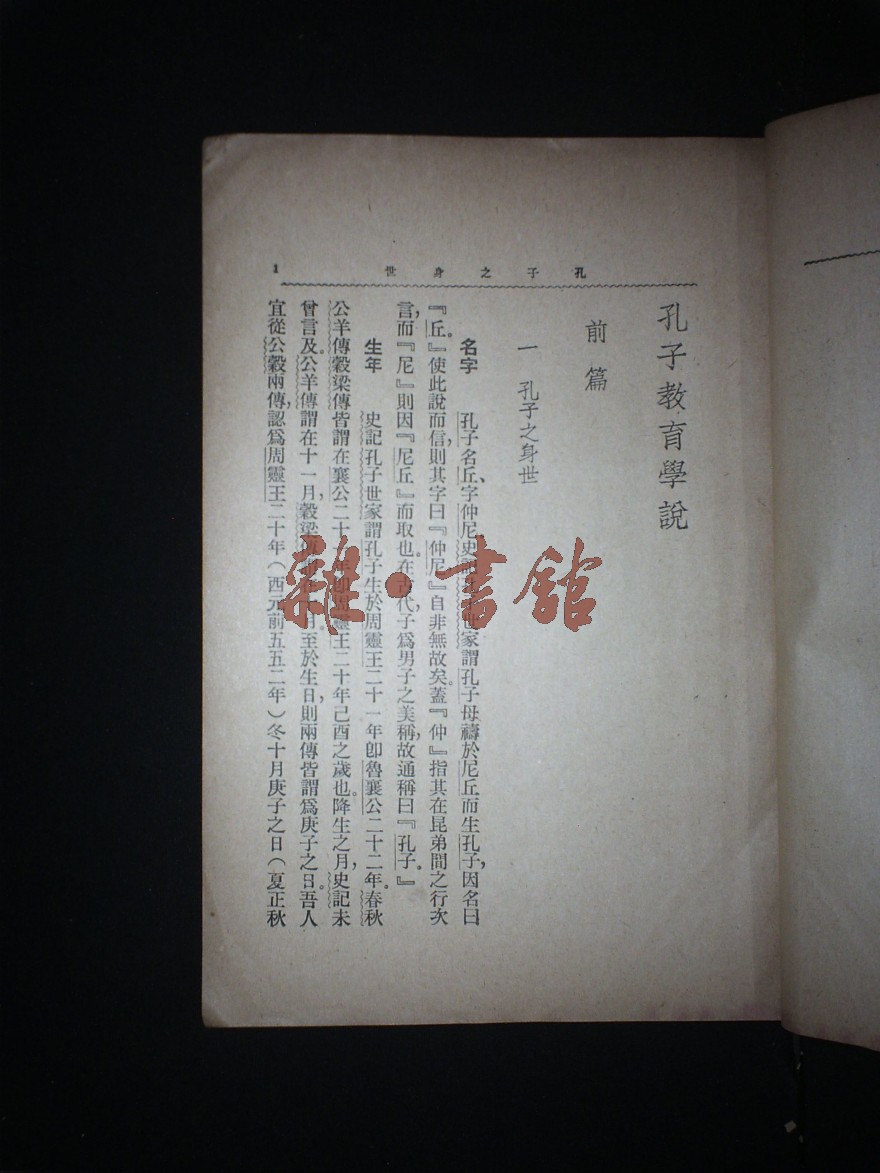 孔子之身世
1
孔子教育學說
前篇
一 孔子之身世
名字 孔子名丘、字仲尼史記孔子世家謂孔子母禱於尼丘而生孔子,因名曰
『丘。』使此說而信,則其字曰『仲尼』自非無故矣。蓋『仲』指其在昆弟間之行次
言,而『尼』則因『尼丘』而取也。在古代,子爲男子之美稱,故通稱曰『孔子。』
生年 史記孔子世家謂孔子生於周靈王二十一年卽魯襄公二十二年。春秋
公羊傳穀梁傳皆謂在襄公二十一年卽周靈王二十年己酉之歲也。降生之月,史記未
曾言及。公羊傳謂在十一月,穀梁傳謂在十月。至於生日,則兩傳皆謂爲庚子之日。吾人
宜從公穀兩傳,認爲周靈王二十年(西元前五五二年)冬十月庚子之日(夏正秋
雜·書館